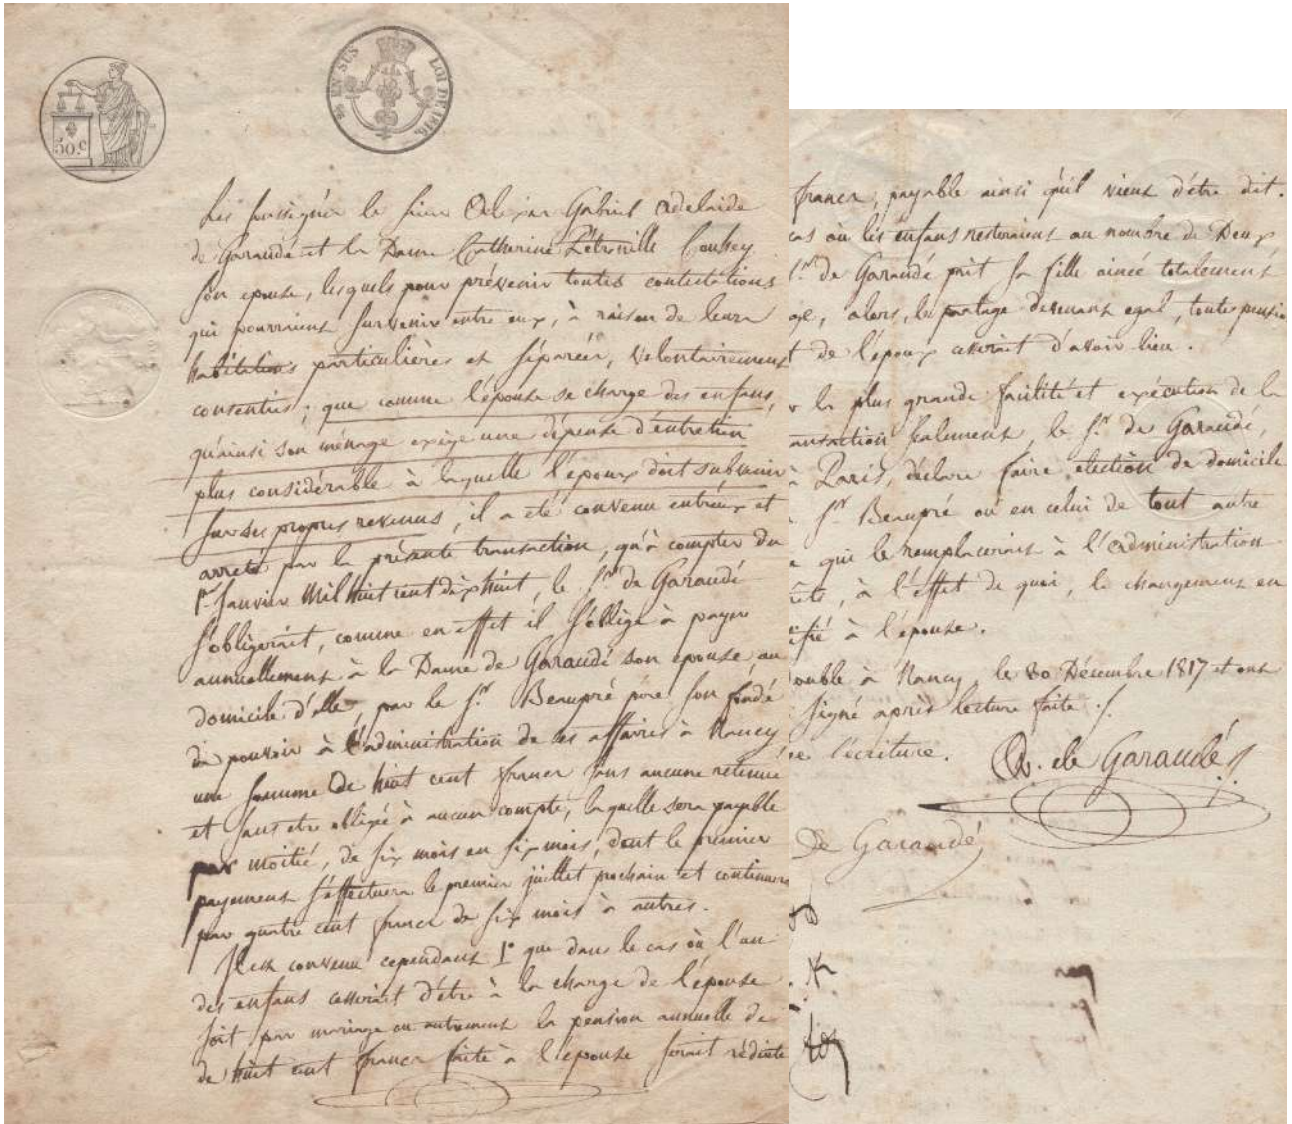 50.c
EN SUS
LOI DE 1816
Les soussignés le sieur Alexandre Gabriel Adelaide
de Garaudé et la Dame Catherine Pétronille
son epouse, lesquels pour prévenir toutes contestations
qui pourraient survenir entre eux, à raison de leurs
habitations particulières et séparées, volontairement
consenties; que comme l'épouse se charge des enfans,
qu'ainsi son ménage exige une dépense d'entretien
plus considérable à laquelle l'époux doit subvenir
sur ses propres revenus, il a été convenu entr'eux et
arreté par la présente transaction, qu'à compter du
1er Janvier Mil huit cent dix huit, le Sr. de Garaudé
s'obligerait, comme en effet il s'oblige à payer
annuellement à la Dame de Garaudé son epouse, au
domicile d'elle, par le Sr. Beaupré père son fondé
de pouvoir à l'administration de ses affaires à Nancy
une somme de huit cent francs sans aucune retenue
et sans etre obligée à aucun compte, laquelle sera payable
par moitié, de six mois en six mois, dont le premier
payement s'effectuera le premier juillet prochain et continuera
par quatre cent francs de six mois à autres.
Il est convenu cependant 1° que dans le cas où l'un
des enfans cesserait d'être à la charge de l'épouse
soit par mariage ou autrement la pension annuelle de
de huit cent francs faite à l'épouse serait réduite
francs, payable ainsi qu'il vient d'être dit.
cas où les enfans resteraient au nombre de Deux,
Sr. de Garaudé prit sa fille ainée totalement
alors, le partage devenant egal, toute pension
de l'époux cesserait d'avoir lieu.
la plus grande facilité et exécution de la
seulement, le Sr. de Garaudé,
à Paris, déclare faire élection de domicile
Sr. Beaupré ou en celui de tout autre
qui le remplacerait à l'administration
à l'effet de quoi, le changement en
à l'épouse.
double à Nancy, le 30 Décembre 1817 et ont
signé après lecture faite ./.
l'écriture. A. de Garaudé
de Garaudé